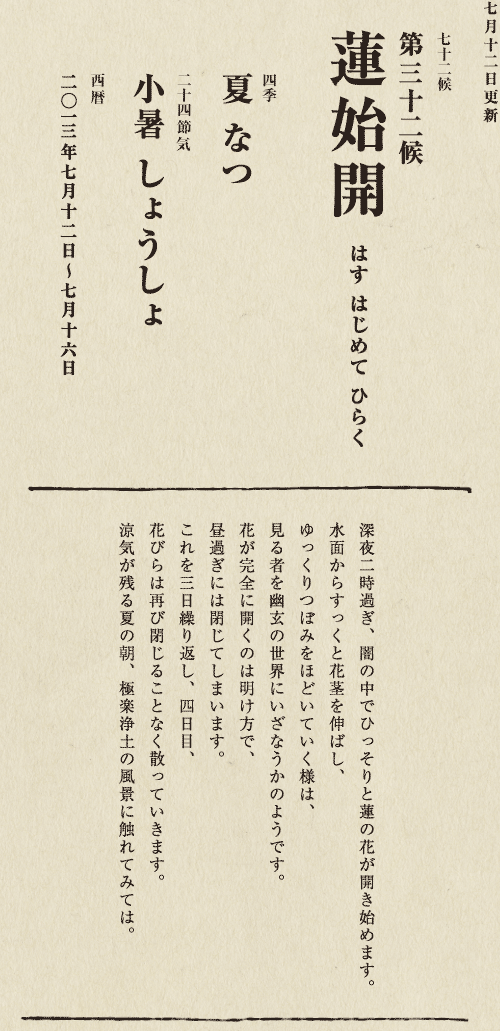 七月十二日更新
七十二候
第三十二候
蓮始開 はす はじめて ひらく
四季
夏 なつ
二十四節気
小暑 しょうしょ
西暦
二〇一三年七月十二日〜七月十六日
深夜二時過ぎ、闇の中でひっそりと蓮の花が開き始めます。
水面からすっくと花茎を伸ばし、
ゆっくりつぼみをほどいていく様は、
見る者を幽玄の世界にいざなうかのようです。
花が完全に開くのは明け方で、
昼過ぎには閉じてしまいます。
これを三日繰り返し、四日目、
花びらは再び閉じることなく散っていきます。
涼気が残る夏の朝、極楽浄土の風景に触れてみては。